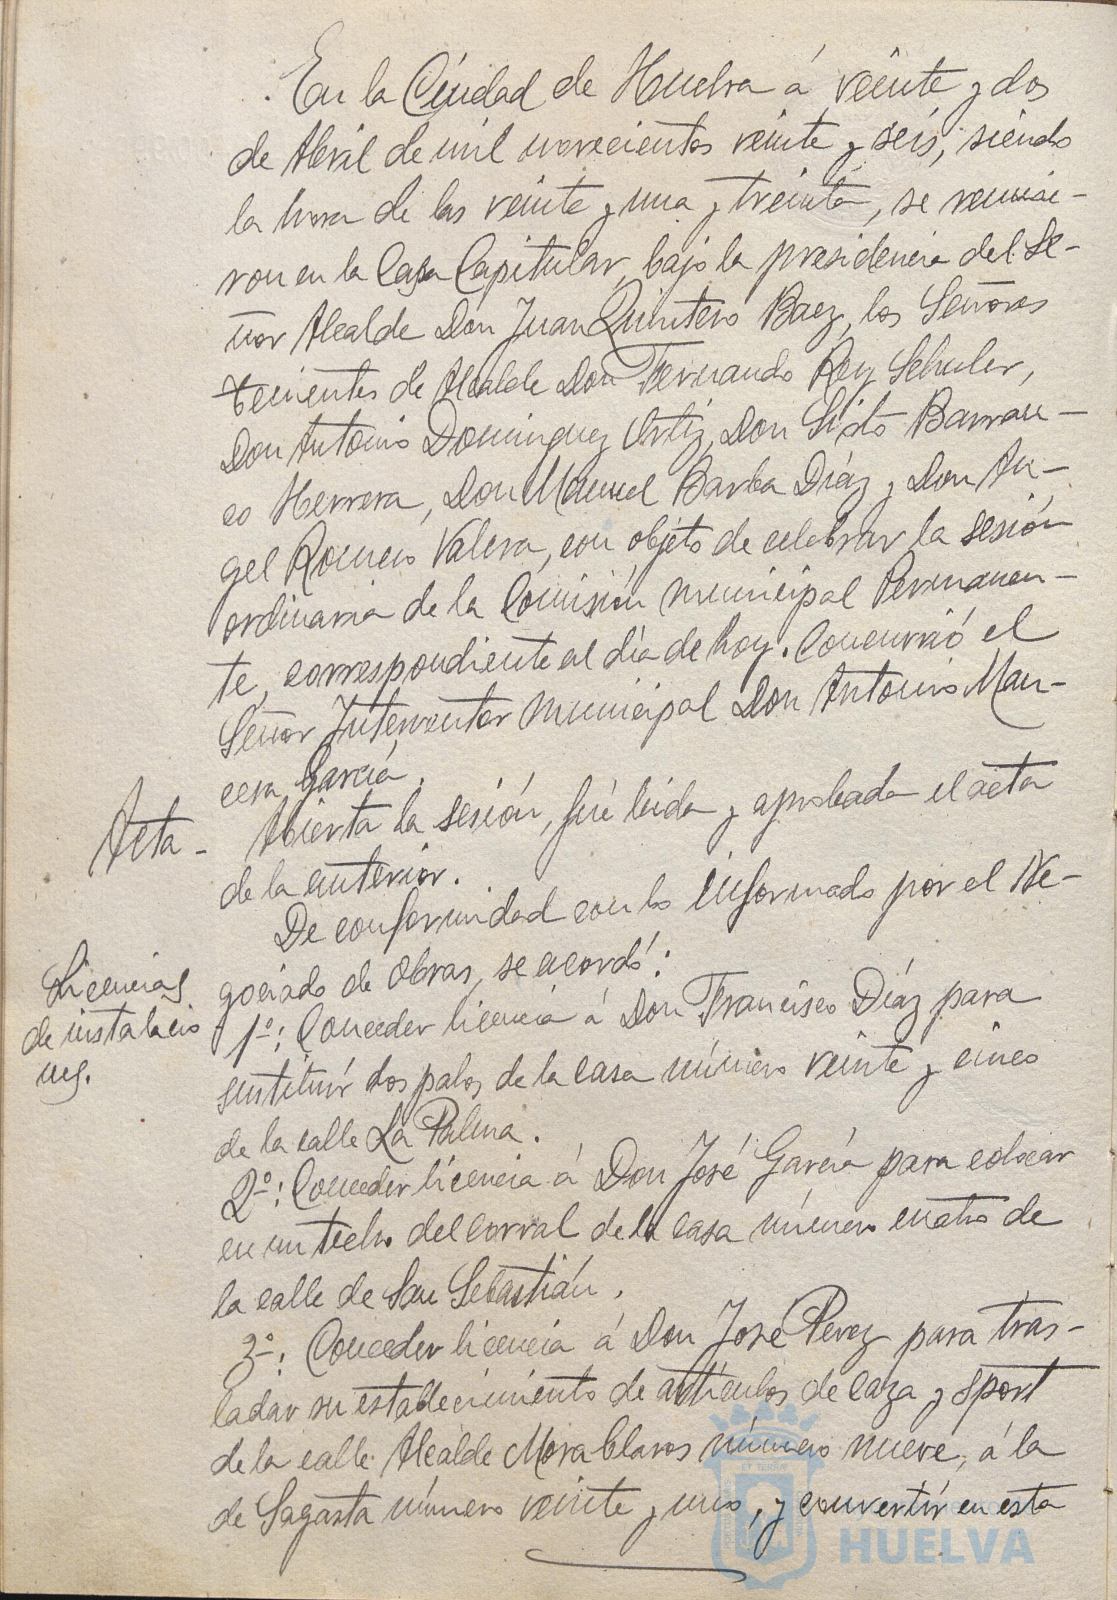 En la Ciudad de Huelva á veinte y dos
de Abril de mil novecientos veinte y seis, siendo
la hora de las veinte y una y treinta, se reunie-
ron en la Casa Capitular, bajo la presidencia del Se-
ñor Alcalde Don Juan Quintero Baez, los Señores
tenientes de Alcalde Don Fernando Rey Schuler,
Don Antonio Dominguez Ortiz, Don Sixto Barran-
co Herrera, Don Manuel Barba Díaz y Don An-
gel Romero Valera, con objeto de celebrar la sesión
ordinaria de la Comisión municipal Permanen-
te, correspondiente al día de hoy. Concurrió el
Señor Interventor municipal Don Antonio Man-
cera García.
Acta - Abierta la sesión, fué leida y aprobada el acta
de la anterior.
De conformidad con lo informado por el Ne-
gociado de Obras, se acordó:
Licencias
de instalacio
nes.
1º: Conceder licencia á Don Francisco Díaz para
sustituir dos palos de la casa número veinte y cinco
de la calle La Palma.
2º: Conceder licencia á Don José García para colocar
en un techo del corral de la casa número cuatro de
la calle de San Sebastián.
3º: Conceder licencia á Don José Perez para tras-
ladar su establecimiento de artículos de caza y sport
de la calle Alcalde Mora Claros número nueve, á la
de Sagasta número veinte y uno, y convertir en esta
HUELVA